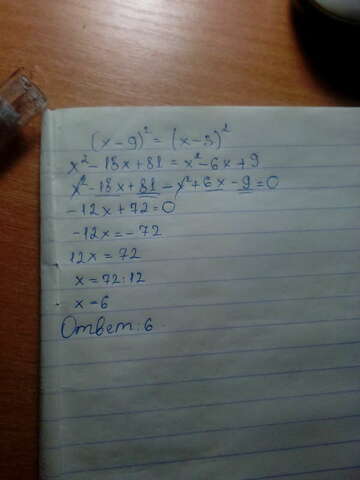 (x-9)² = (x-3)²
x²-18x+81 = x²-6x+9
x²-18x+81-x²+6x-9=0
-12x+72=0
-12x=-72
12x=72
x=72:12
x=6
Ответ: 6.